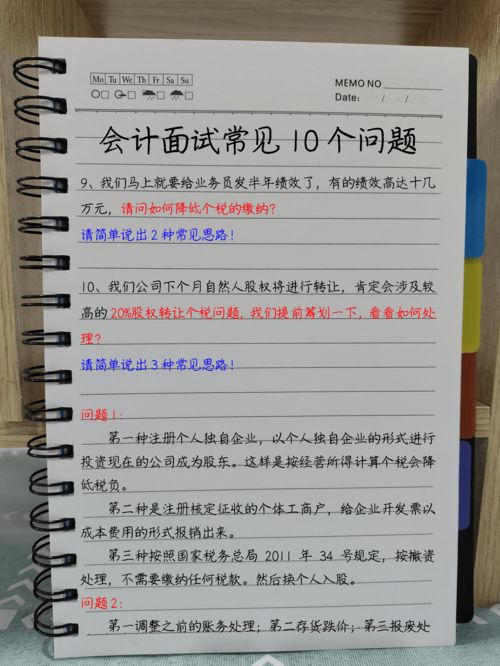 Mo Tu We Th Fr Sa Su
MEMO NO
Date: / /
会计面试常见10个问题
9、我们马上就要给业务员发半年绩效了，有的绩效高达十几
万元，请问如何降低个税的缴纳？
请简单说出2种常见思路！
10、我们公司下个月自然人股权将进行转让，肯定会涉及较
高的20%股权转让个税问题，我们提前筹划一下，看看如何处
理？
请简单说出3种常见思路！
问题1：
第一种注册个人独自企业，以个人独自企业的形式进行
投资现在的公司成为股东。这样是按经营所得计算个税会降
低税负。
第二种是注册核定征收的个体工商户，给企业开发票以
成本费用的形式报销出来。
第三种按照国家税务总局 2011 年 34 号规定，按撤资
处理，不需要缴纳任何税款。然后换个人入股。
问题2：
第一调整之前的账务处理；第二存货跌价；第三报废处